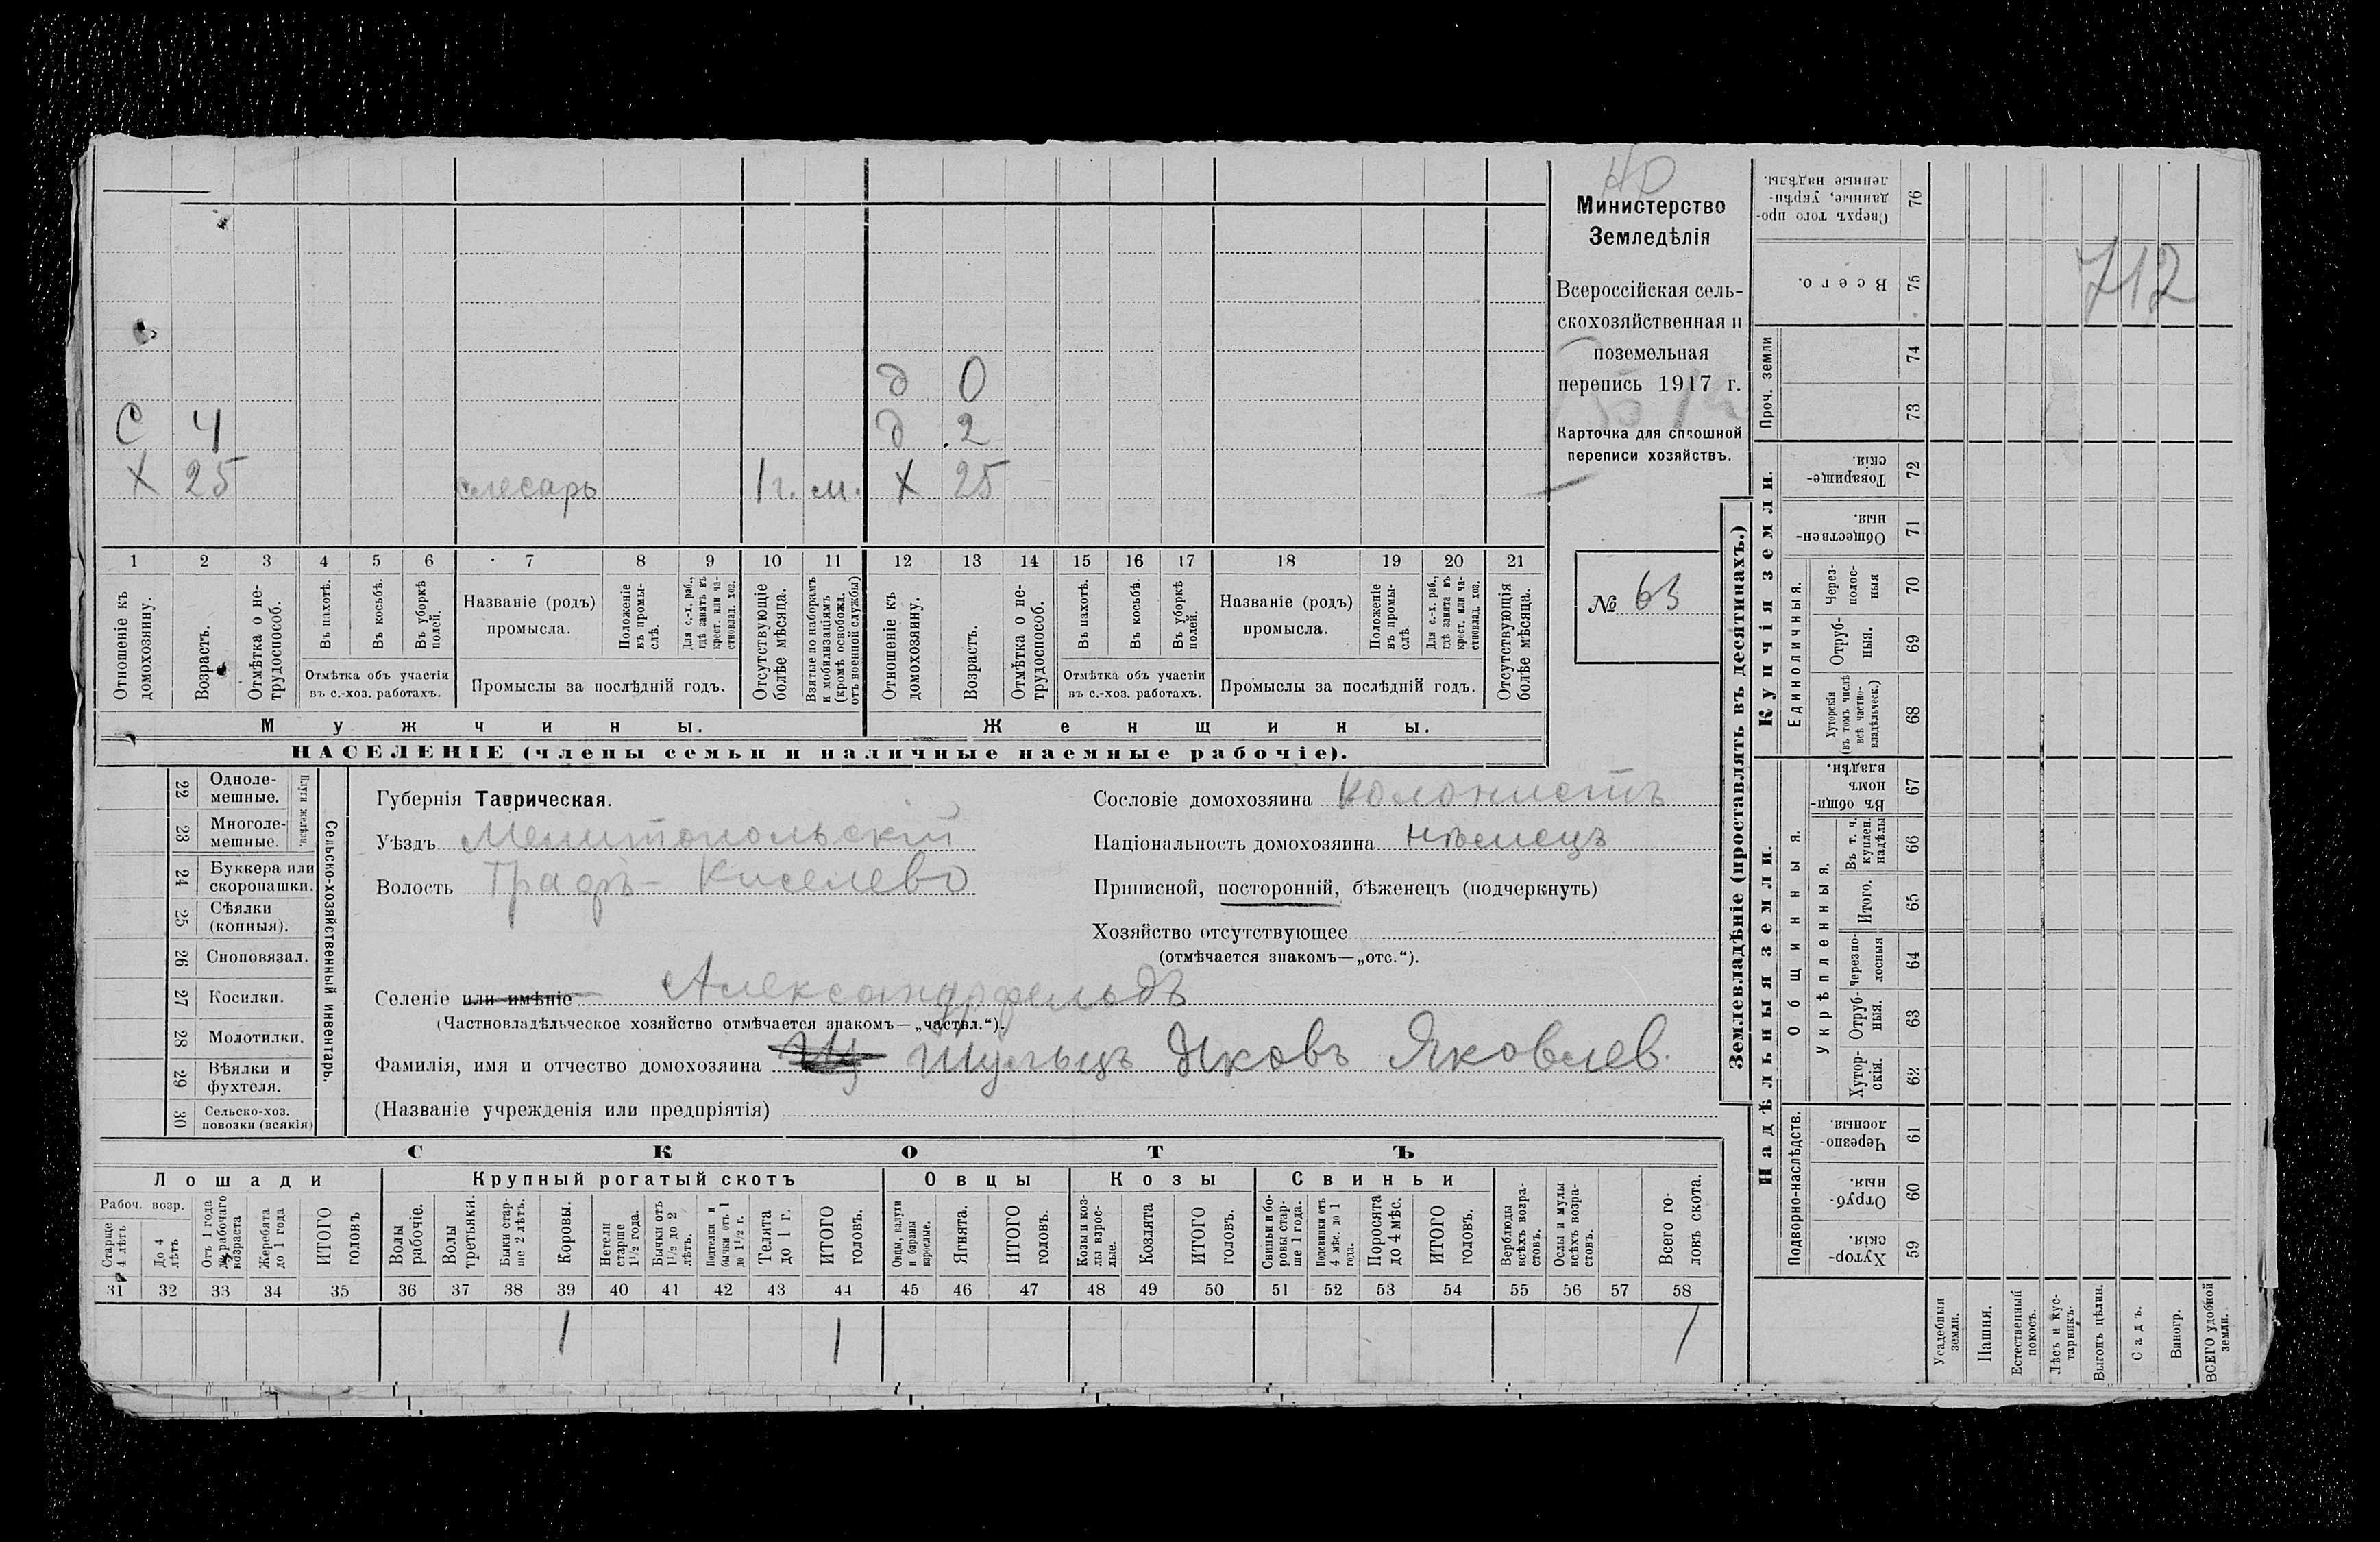 НР
Министерство
Земледѣлія
Всероссійская сель-
скохозяйственная и
поземельная
перепись 1917 г.
Карточка для сплошной
переписи хозяйствъ.
№ 63
712
д 0
С 4 д 2
Х 25 слесарь 1 г. м. Х 25
1 2 3 4 5 6 7 8 9 10 11 12 13 14 15 16 17 18 19 20 21
Отношеніе къ домохозяину.
Возрастъ.
Отмѣтка о не-трудоспособ.
Въ пахотѣ.
Въ косьбѣ.
Въ уборкѣ полей.
Отмѣтка объ участіи
въ с.-хоз. работахъ.
Названіе (родъ)
промысла.
Положеніе въ промы-слѣ.
Для с.-х. раб., гдѣ занятъ въ крест. или ча-стновлад. хоз.
Промыслы за послѣдній годъ.
Отсутствующіе болѣе мѣсяца.
Взятые по наборамъ и мобилизаціямъ (кромѣ освобожд. отъ военной службы)
Отношеніе къ домохозяину.
Возрастъ.
Отмѣтка о не-трудоспособ.
Въ пахотѣ.
Въ косьбѣ.
Въ уборкѣ полей.
Отмѣтка объ участіи
въ с.-хоз. работахъ.
Названіе (родъ)
промысла.
Положеніе въ промы-слѣ
Для с.-х. раб., гдѣ занята въ крест. или ча-стновлад. хоз.
Промыслы за послѣдній годъ.
Отсутствующія болѣе мѣсяца.
Мужчины. Женщины.
НАСЕЛЕНІЕ (члены семьи и наличные наемные рабочіе).
22 Одноле-мешные.
23 Многоле-мешные.
Плуги желѣзн.
24 Буккера или скоропашки.
25 Сѣялки (конныя).
26 Сноповязал.
27 Косилки.
28 Молотилки.
29 Вѣялки и фухтеля.
30 Сельско-хоз. повозки (всякія)
Сельско-хозяйственный инвентарь.
Губернія Таврическая.
Уѣздъ Мелитопольскій
Волость Графъ-Киселево
Сословіе домохозяина колонистъ
Національность домохозяина нѣмецъ
Приписной, посторонній, бѣженецъ (подчеркнуть)
Хозяйство отсутствующее
(отмѣчается знакомъ—„отс.“).
Селеніе или имѣніе Александрфельдъ
(Частновладѣльческое хозяйство отмѣчается знакомъ—„частвл.“).
Фамилія, имя и отчество домохозяина Шульцъ Яковъ Яковлев.
(Названіе учрежденія или предпріятія)
СКОТЪ
Лошади Крупный рогатый скотъ Овцы Козы Свиньи
Рабоч. возр.
Старше 4 лѣтъ
До 4 лѣтъ
Отъ 1 года до рабочаго возраста
Жеребята до 1 года
ИТОГО головъ
Волы рабочіе.
Волы третьяки.
Быки стар-ше 2 лѣтъ.
Коровы.
Нетели старше 1 1/2 года.
Бычки отъ 1 1/2 до 2 лѣтъ.
Подтелки и бычки отъ 1 до 1 1/2 г.
Телята до 1 г.
ИТОГО головъ.
Овцы, валухи и бараны взрослые.
Ягнята.
ИТОГО головъ.
Козы и коз-лы взрос-лые.
Козлята
ИТОГО головъ.
Свиньи и бо-ровы стар-ше 1 года.
Подсвинки отъ 4 мѣс. до 1 года.
Поросята до 4 мѣс.
ИТОГО головъ.
Верблюды всѣхъ возра-стовъ.
Ослы и мулы всѣхъ возра-стовъ.
Всего го-ловъ скота.
31 32 33 34 35 36 37 38 39 40 41 42 43 44 45 46 47 48 49 50 51 52 53 54 55 56 57 58
1 1 1
Землевладѣніе (проставлять въ десятинахъ.)
Надѣльныя земли. Купчія земли. Проч. земли
Подворно-наслѣдств.
Общинныя.
Укрѣпленныя.
Единоличныя.
Сверхъ того про-данные, укрѣп-ленные надѣлы. 76
Всего. 75
74
73
Товарище-скія. 72
Обществен-ныя. 71
Через-полос-ныя 70
Отруб-ныя. 69
Хуторскія (въ томъ числѣ всѣ частно-владѣльческ.) 68
Въ общин-номъ владѣн. 67
Въ т. ч. куплен. надѣлы 66
Итого. 65
Черезпо-лосныя 64
Отруб-ныя. 63
Хутор-скія. 62
Черезпо-лосныя. 61
Отруб-ныя. 60
Хутор-скія. 59
Усадебныя земли.
Пашня.
Естественный покосъ.
Лѣсъ и кус-тарникъ.
Выгонъ цѣлин.
Садъ.
Виногр.
ВСЕГО удобной земли.